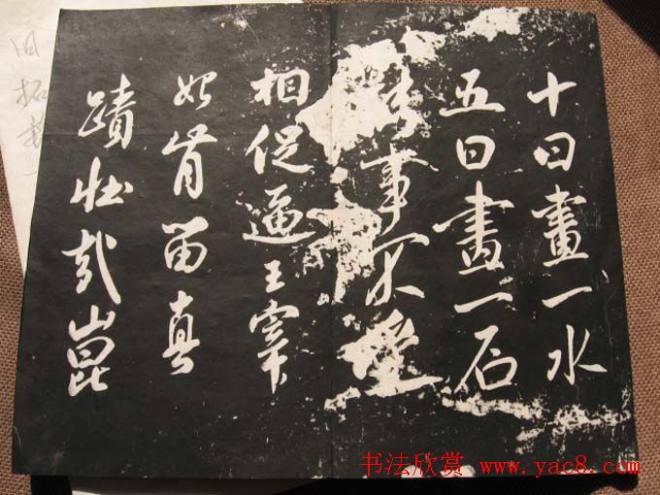 十日畫一水
五日畫一石
能事不受
相促逼王宰
始肯留真
蹟壯哉崑
旧拓
书法欣赏 www.yac8.com